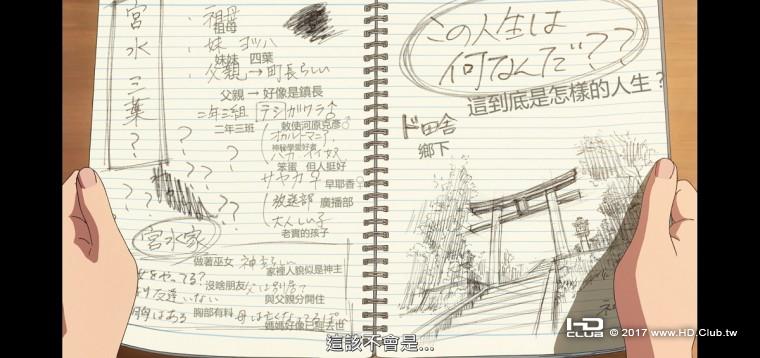 宮水三葉?
・祖母
祖母
・妹 ヨツハ
妹妹 四葉
父親→町長らしい
父親 → 好像是鎮長
二年三組
二年三班
テシガワラ♂
敕使河原克彥♂
オカルトマニア、
神秘學愛好者
バカ、イイ奴
笨蛋 但人挺好
サヤカ ♀
早耶香♀
放送部 廣播部
大人しい子
老實的孩子
? ? ? ? ? ? ? ? ?
宮水家
做著巫女
家裡人貌似是神主
巫女をやってる?
沒啥朋友 父は別居
與父親分開住
友達いない
胸はある 胸部有料
母は亡くなってるっぽい
媽媽好像已經去世
この人生は
何なんだ??
這到底是怎樣的人生?
ド田舎
鄉下
這該不會是...
HD CLUB
© 2017 www.HD.Club.tw